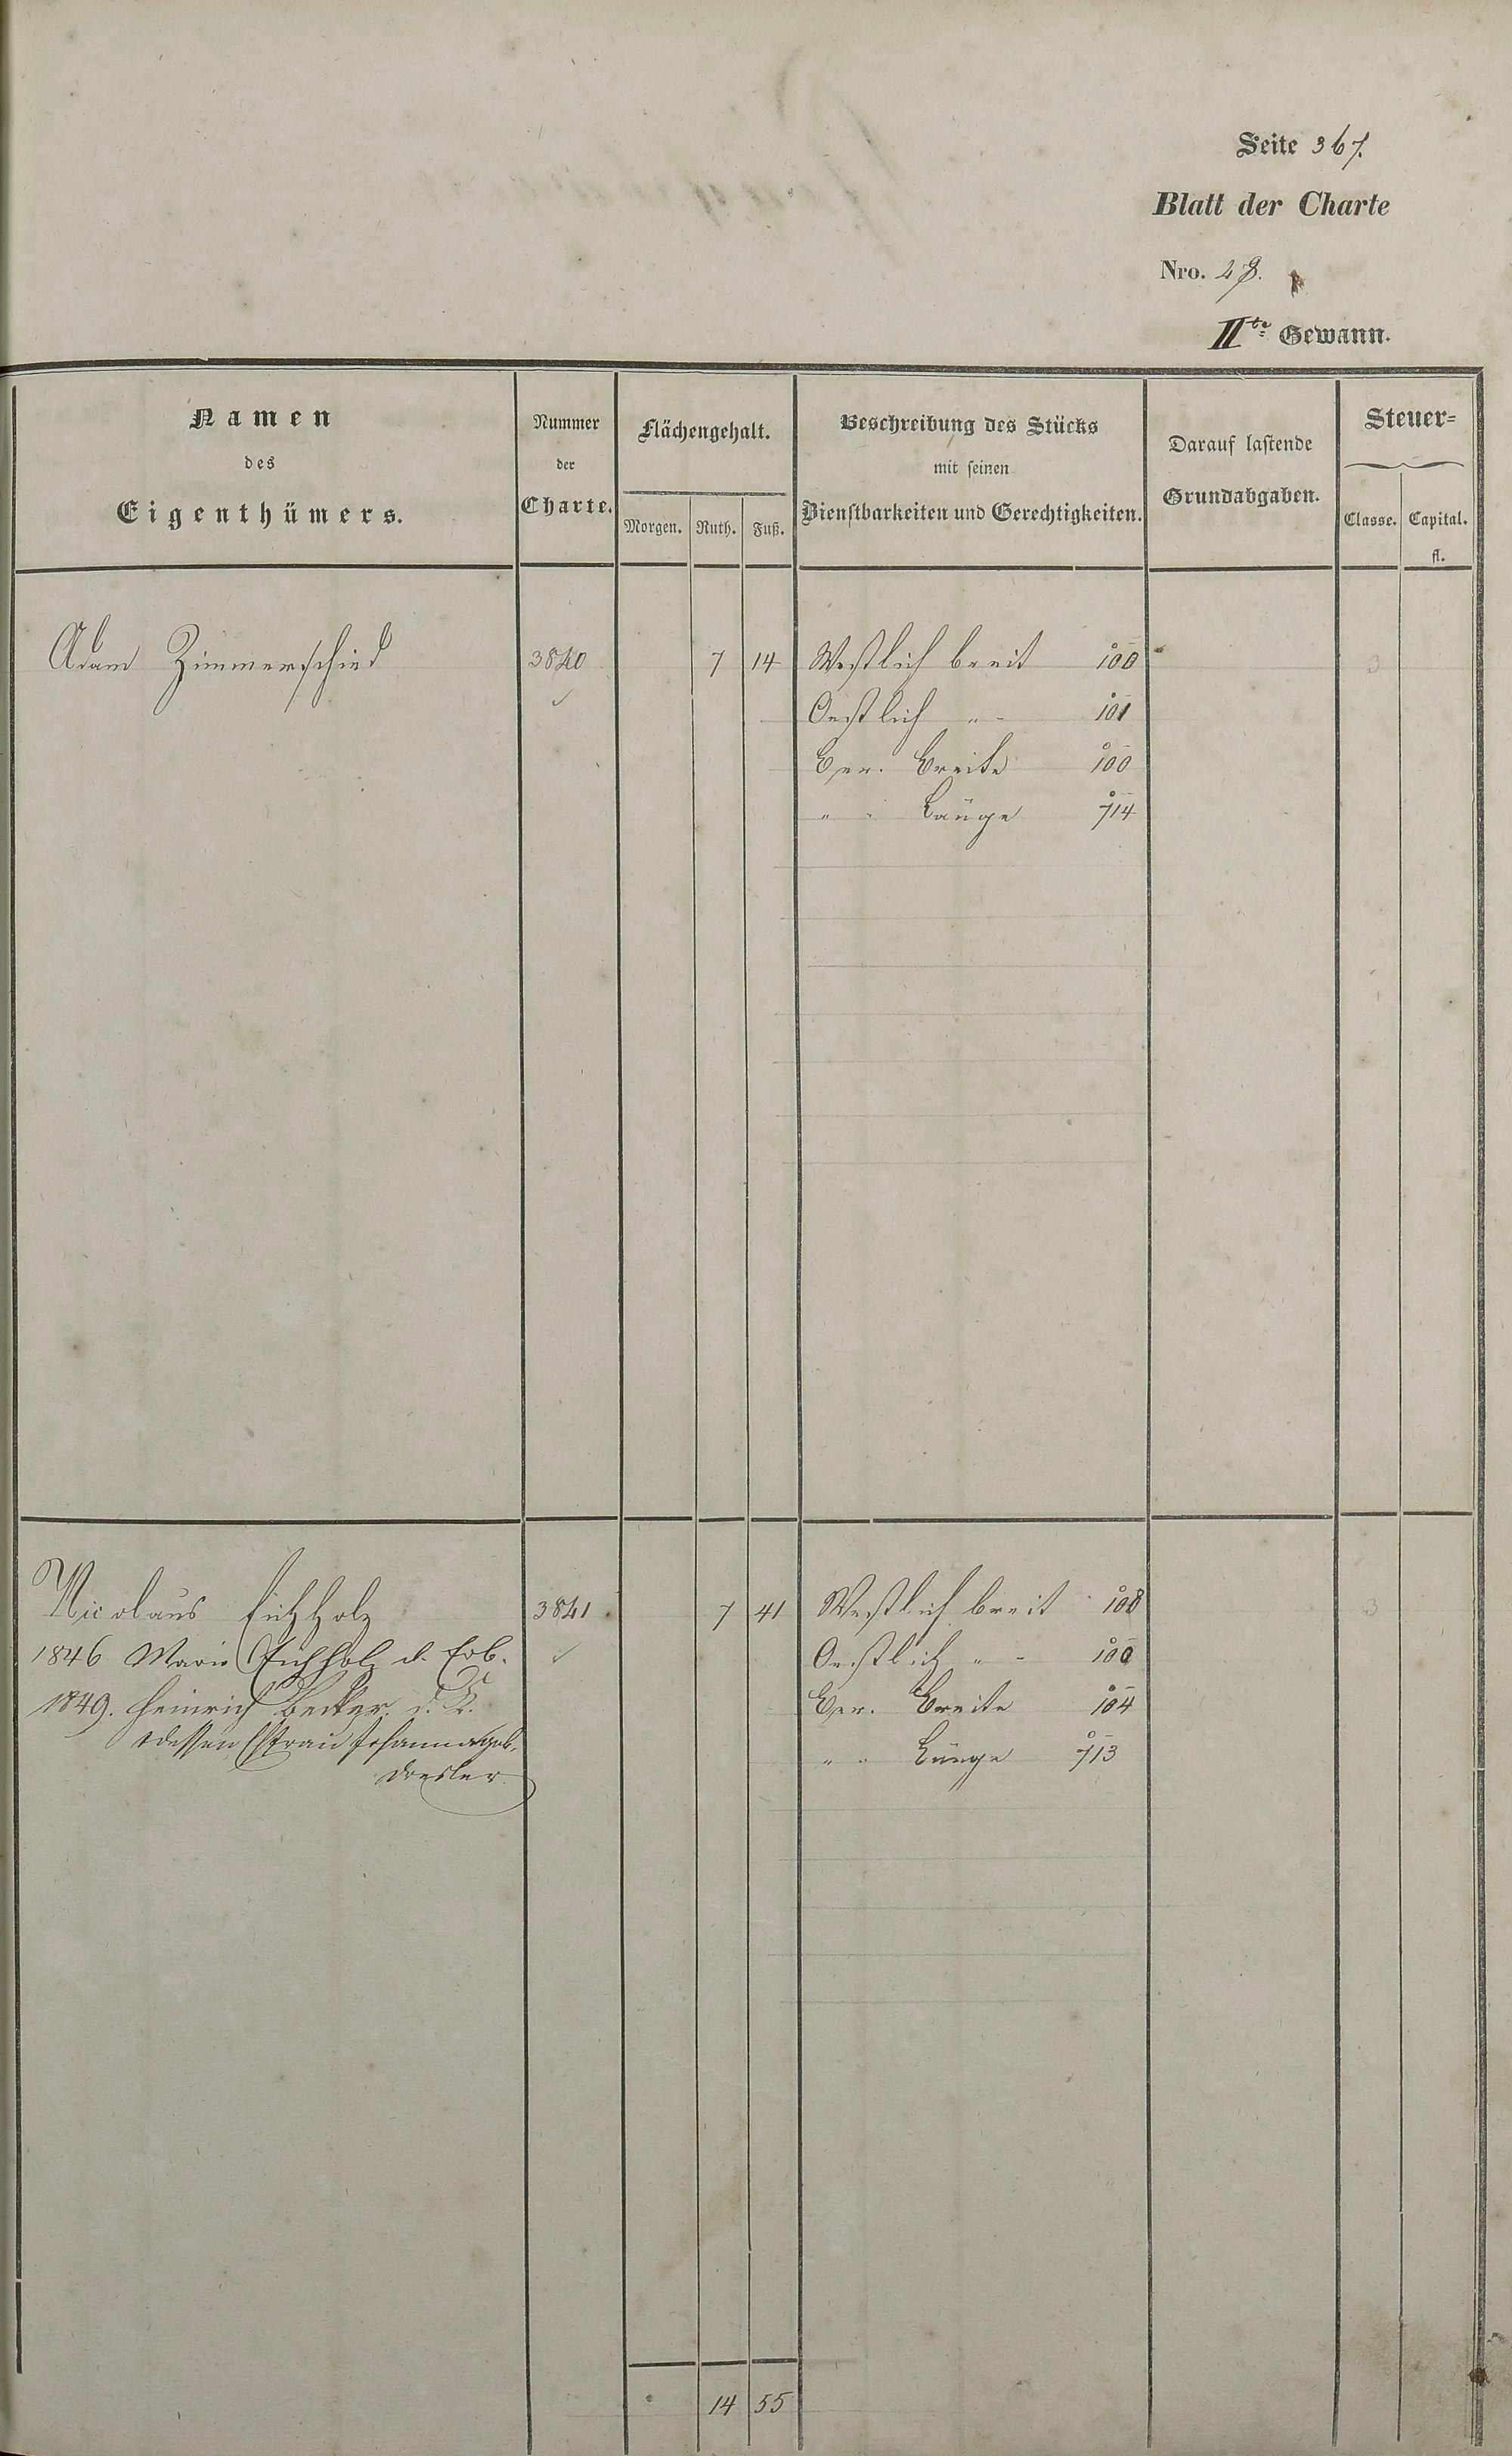 Seite 367.
Blatt der Charte
Nro. 28.
IIte Gewann.
Namen
des
Eigenthümers.
Nummer
der
Charte.
Flächengehalt.
Morgen. Ruth. Fuß.
Beschreibung des Stücks
mit seinen
Dienstbarkeiten und Gerechtigkeiten.
Darauf lastende
Grundabgaben.
Steuer=
Classe. Capital.
fl.
Adam Zimmerschied 3840 7 14 Westlich breit 100 3
Oestlich " - 101
Ger. Breite 100
" " Länge 714
Nicolaus Eichholz 3841 7 41 Westlich breit 108 3
1846 Marie Eichholz d. Erb. Oestlich " - 100
1849. Heinrich Becker d. K. Ger. Breite 104
dessen Ehefrau Johanna geb. " " Länge 713
Doesler
14 55